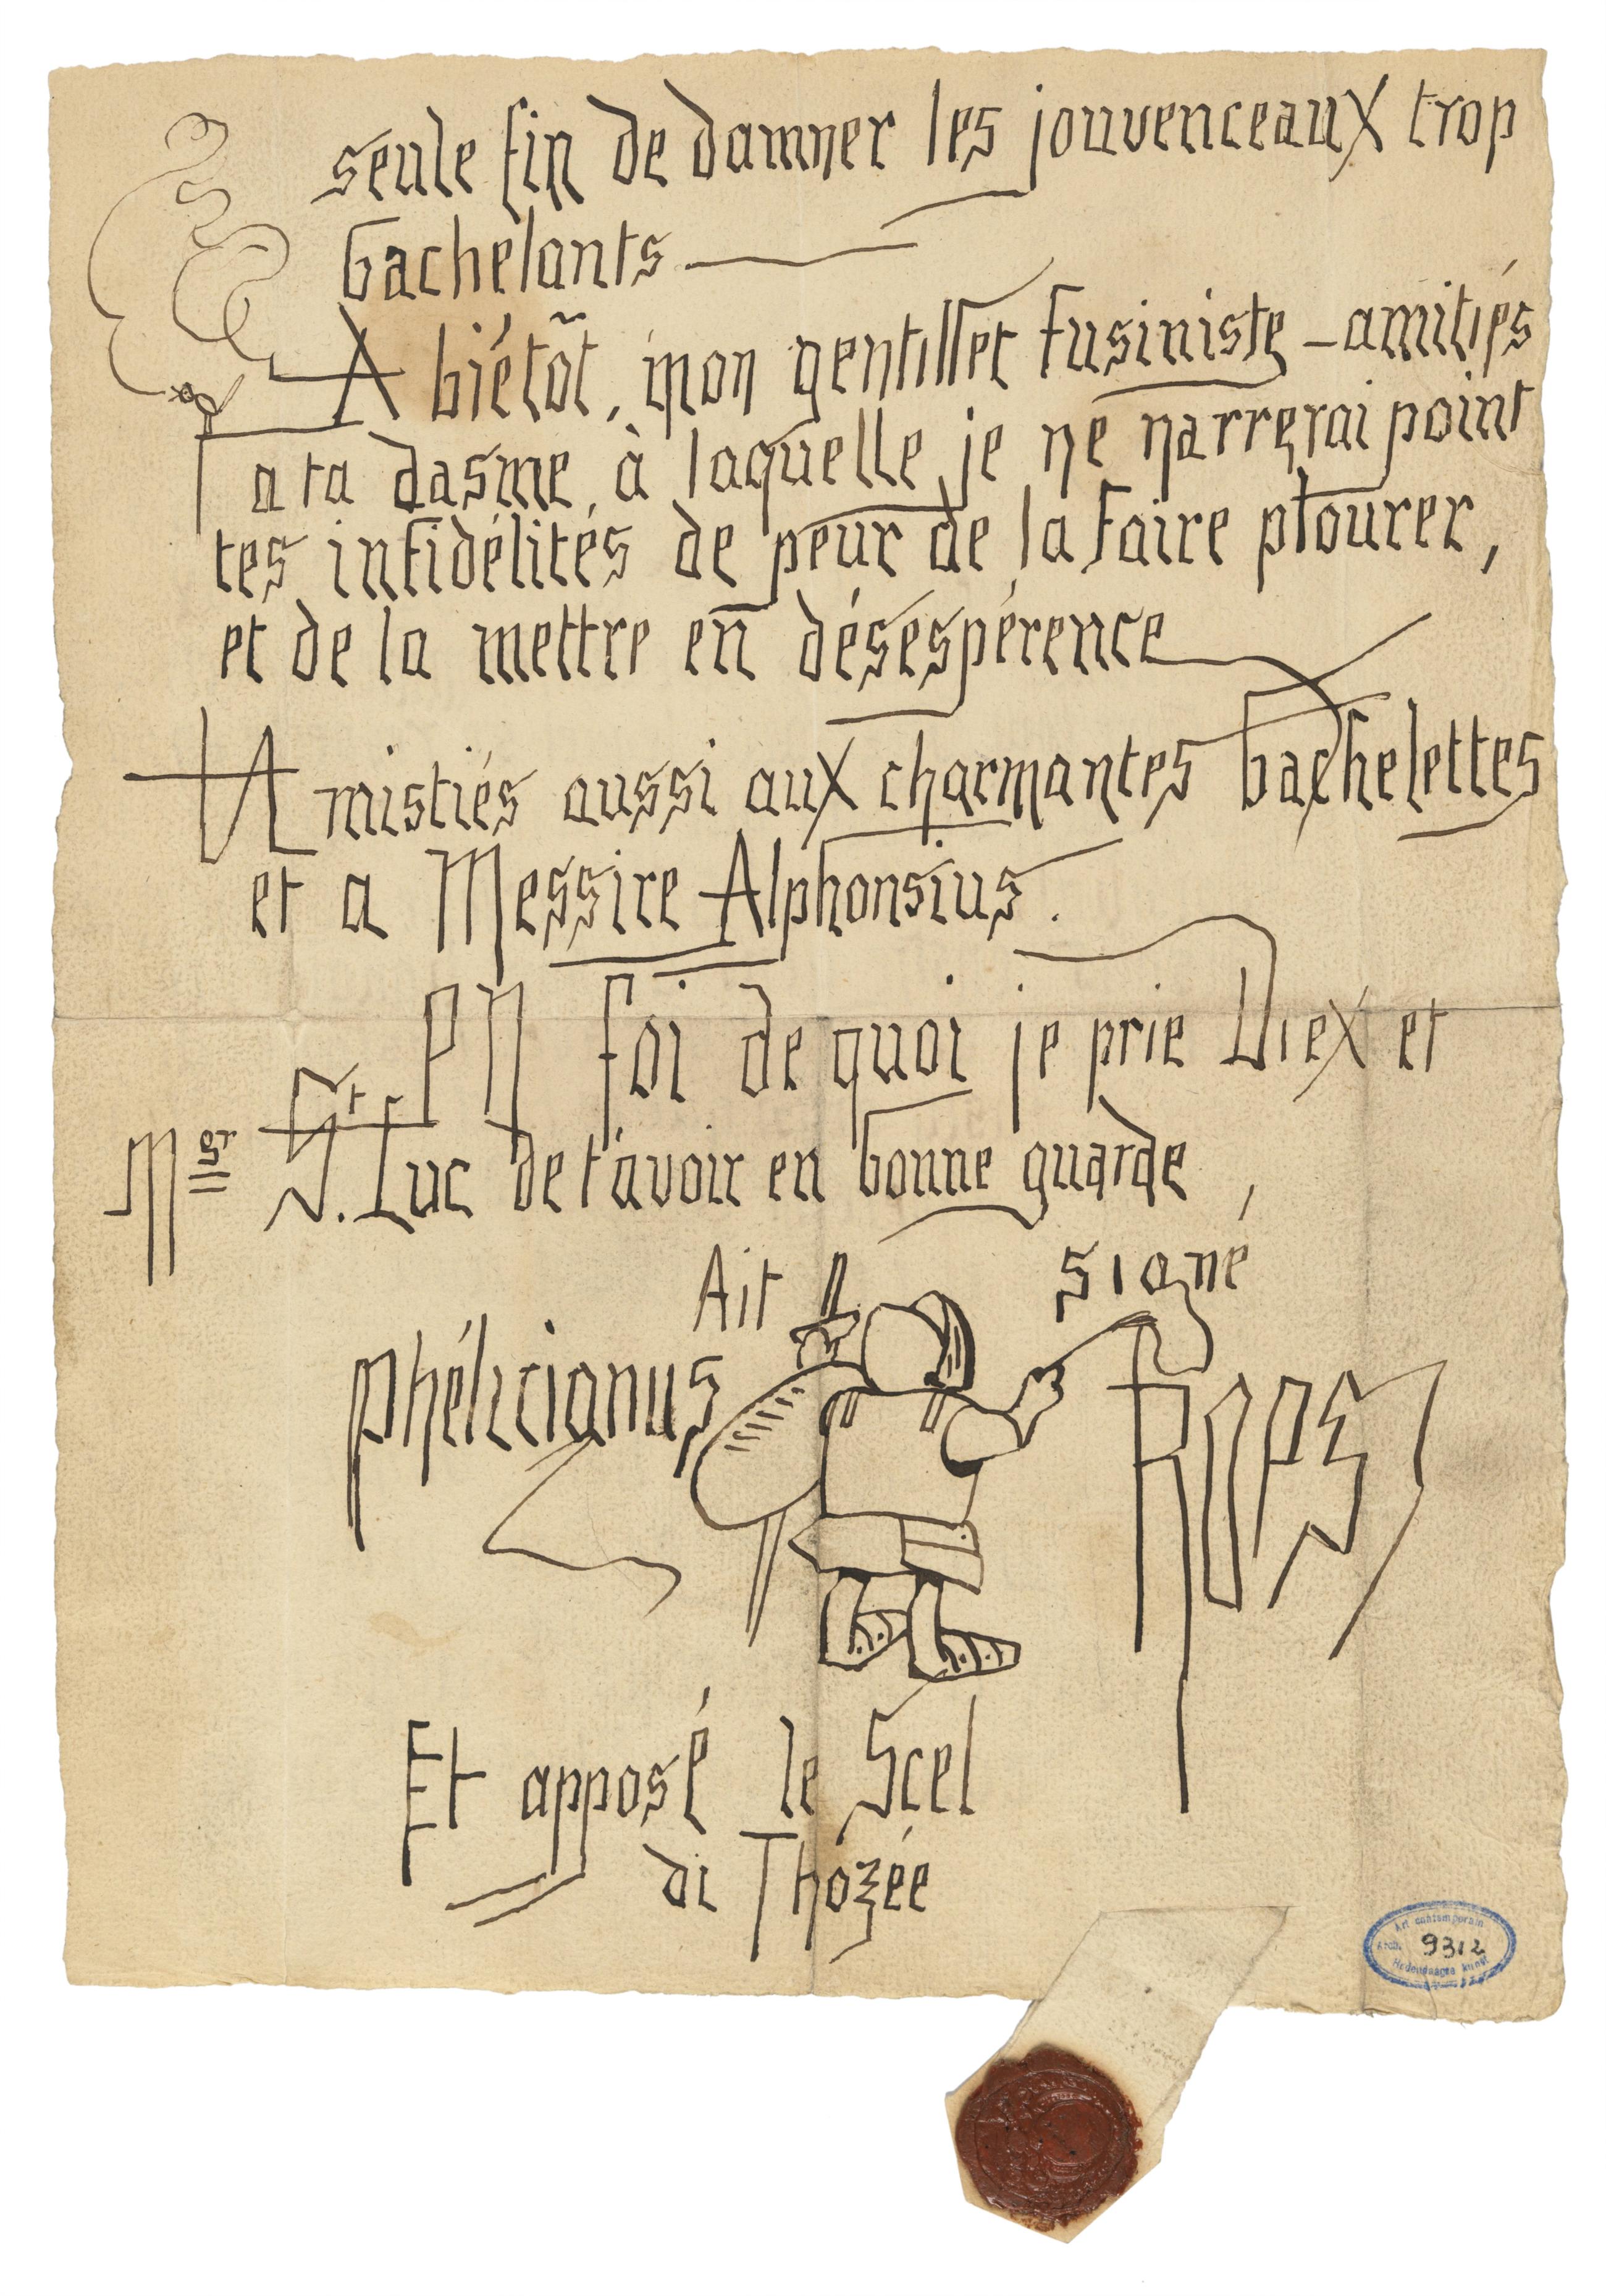 seule fin de damner les jouvenceaux trop
bachelants
A biétôt, mon gentillet fusiniste - amitiés
a ta dasme, à laquelle je ne narrerai point
tes infidélités de peur de la faire plourer,
et de la mettre en désespérence
Amistiés aussi aux charmantes bachelettes
et a Messire Alphonsius.
EN foi de quoi je prie Diex et
Mgr St. Luc de t'avoir en bonne guarde,
Ait signé
Phélicianus ROPS
Et apposé le Scel
di Thozée
Art contemporain
Arch. 9312
Hedendaagse kunst